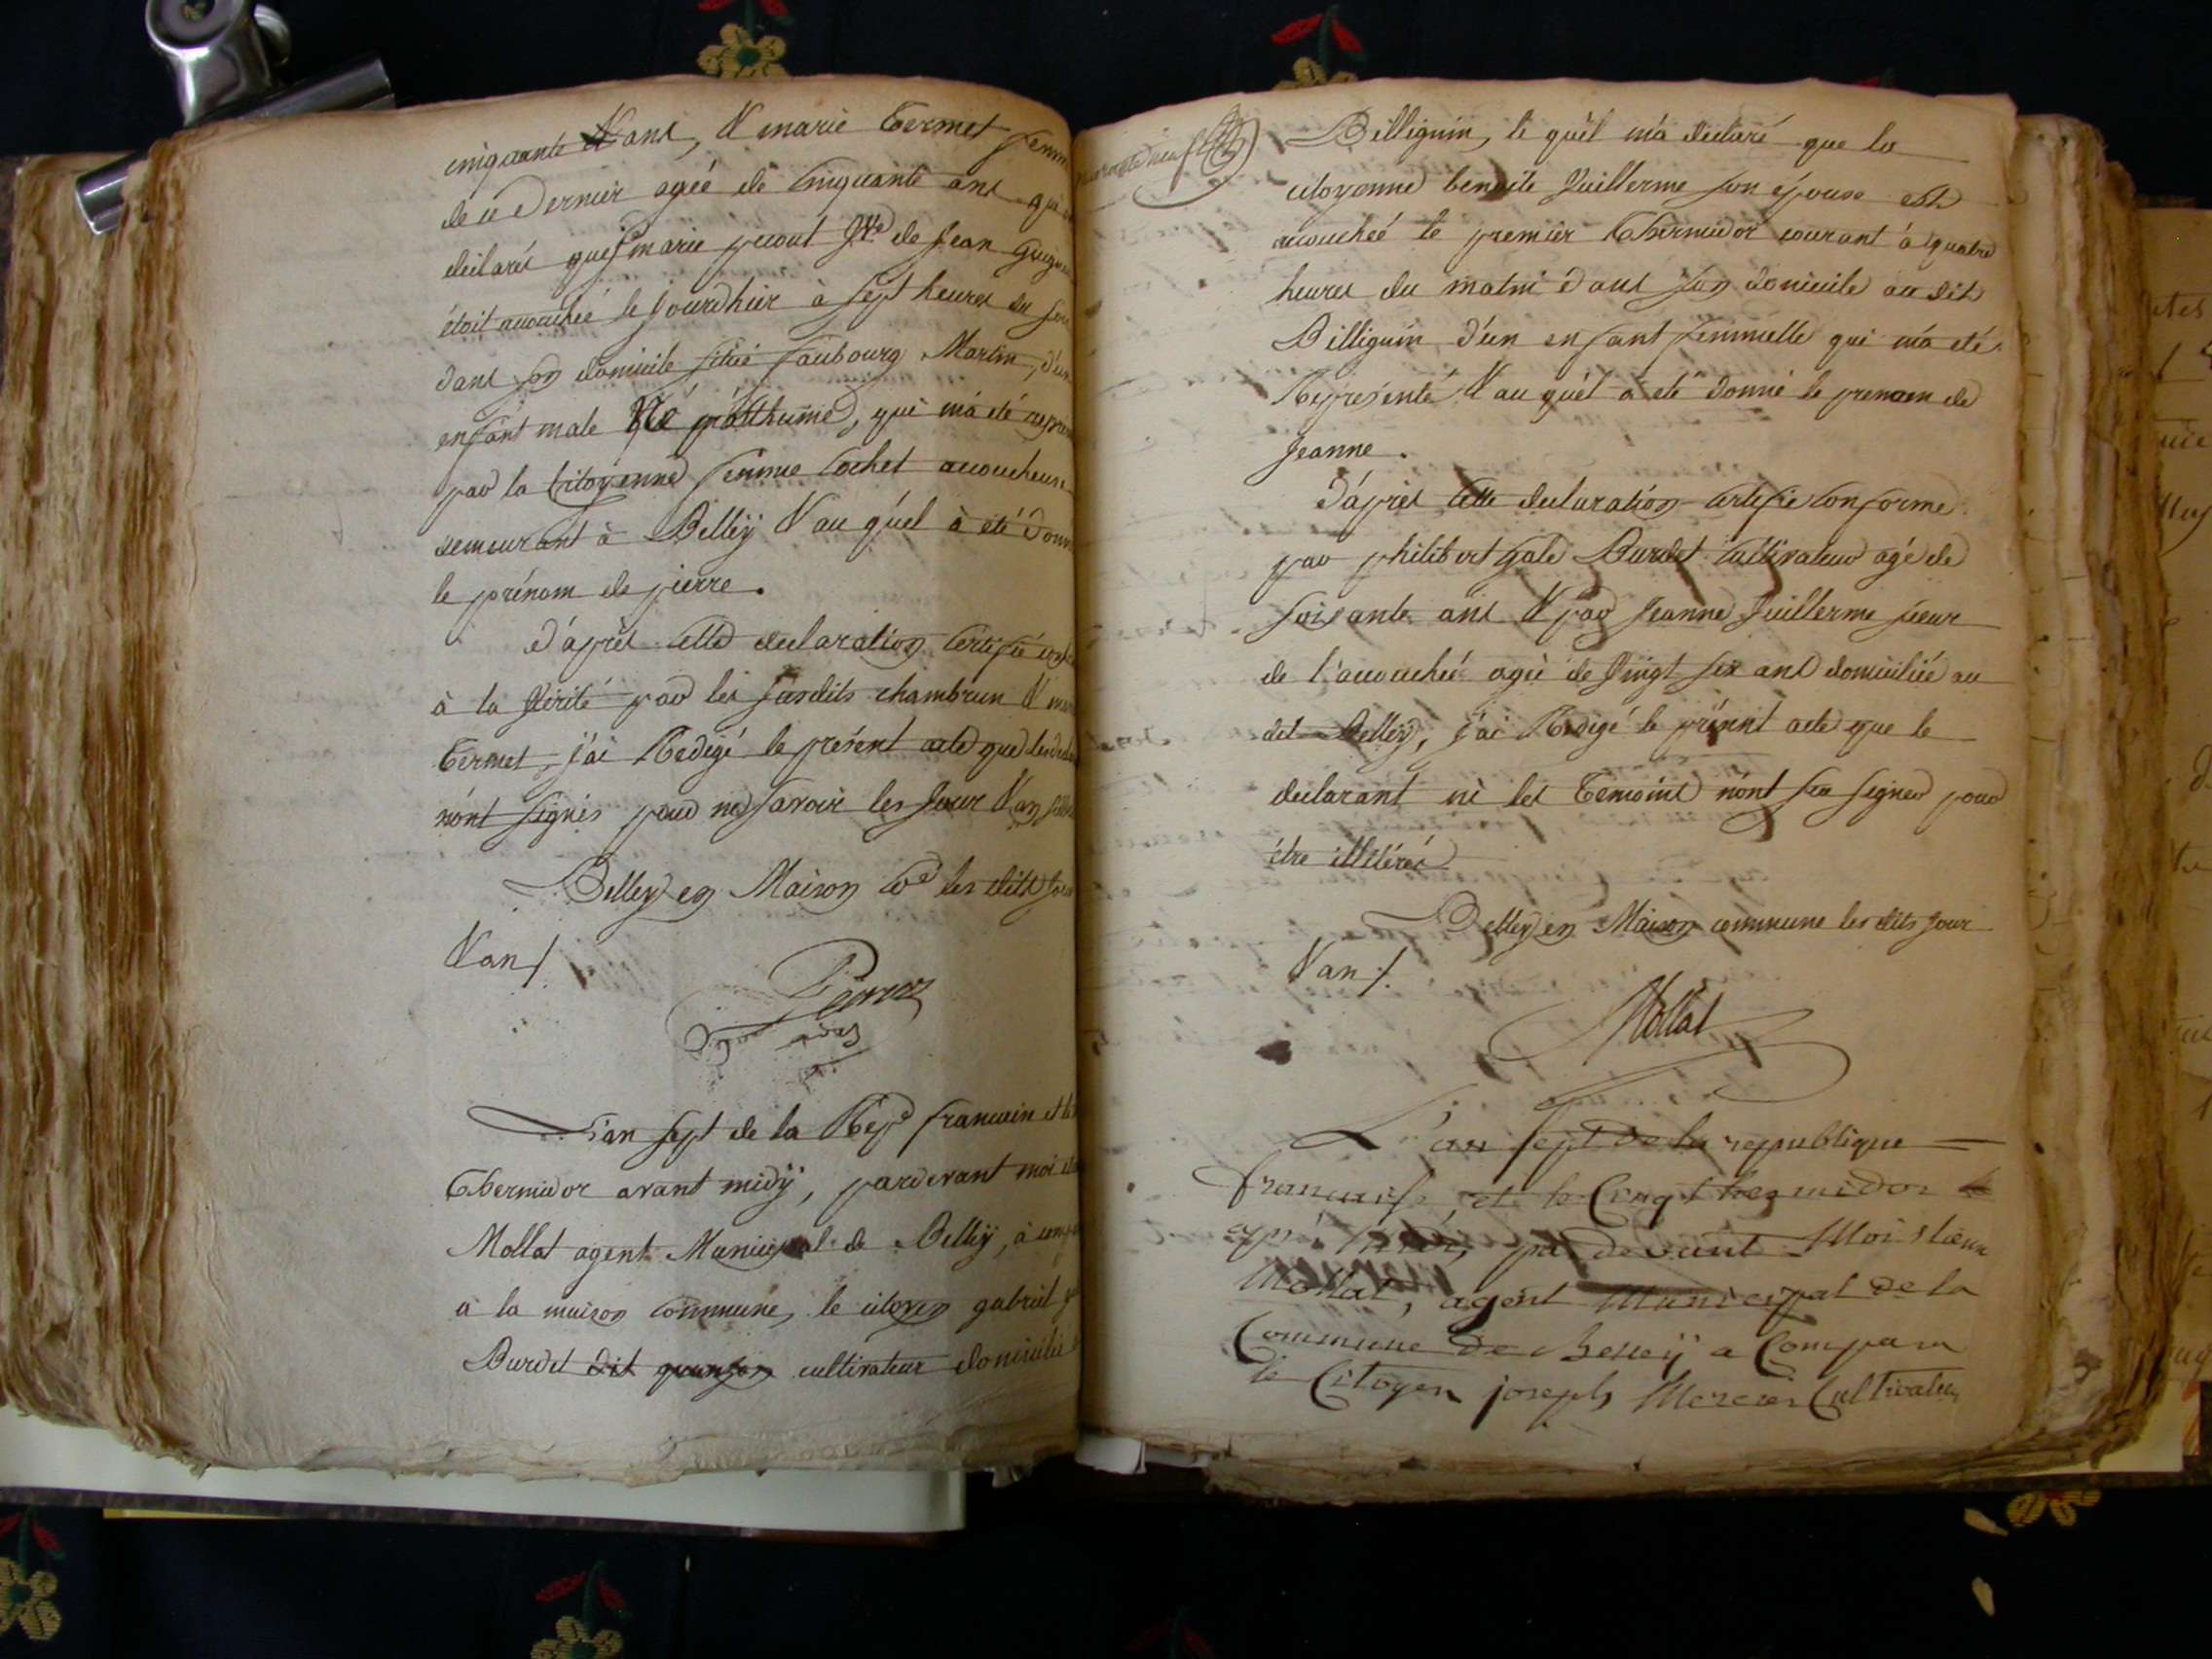 cinquante ans, & marie Termet femm
de ce Dernier ageé de Cinquante ans
declaré que marie pecout Vve de Jean
étoit accouchée le Jourdhier à Sept heures du soi
dans son domicile situé faubourg Martin, d'un
enfant male Né posthume, qui m'a eté
par la Citoyenne femme Cochet accoucheuse
demeurant à Belleÿ & au quel à eté donn
le prénom de pierre.
D'après cette declaration Certifié
à la Vérité par les susdits chambrun &
Termet, j'ai Redigé le présent acte que
n'ont Signés pour ne savoir les Jour & an
Belley en Maison les dits
& an /.
L'an sept de la francain et
Thermidor avant midÿ, pardevant moi
Mollat agent Municipal de Belleÿ, à
à la maison commune, le citoyen gabriel
Burdet dit cultivateur domicilié
Billignin, le quel m'a declaré que la
citoyenne benoite Juillerme son épouse est
accouchée le premier Thermidor courant à quatre
heures du matin dans son domicile au dit
Billignin d'un enfant femmelle qui m'a eté
Représenté & au quel à eté donné le prenom de
Jeanne.
D'après cette declaration Certifié conforme
par philibert Burdet cultivateur agé de
soixante ans & par Jeanne Juillerme sœur
de l'accouchée agée de Vingt six ans domiciliée au
dit Belley, j'ai Redigé le présent acte que le
declarant ni les Temoins n'ont su signer pour
être illitérés
Belley en Maison commune les dits Jour
& an /.
Mollat
L'an sept de la republique
francaise, et le Cinq thermidor
après midi, par devant Moi
Mollat, agent Municipal de la
Commune de Belleÿ a Comparu
le Citoyen joseph Mercier Cultivateur